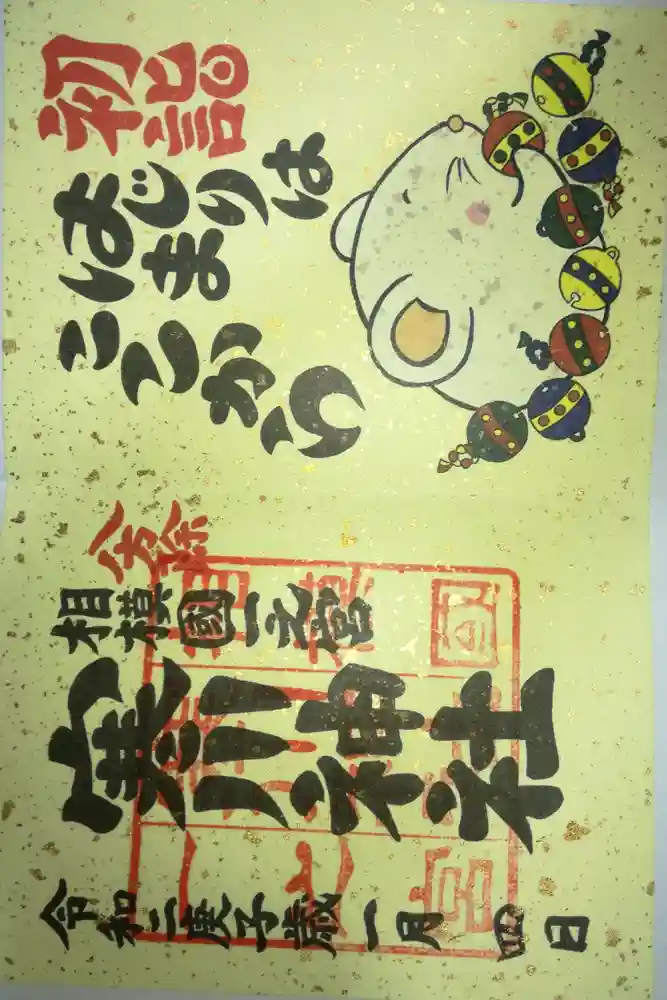 初詣
はじまりは
ここから
八方除
相模國一之宮
寒川神社
令和二庚子歳一月四日